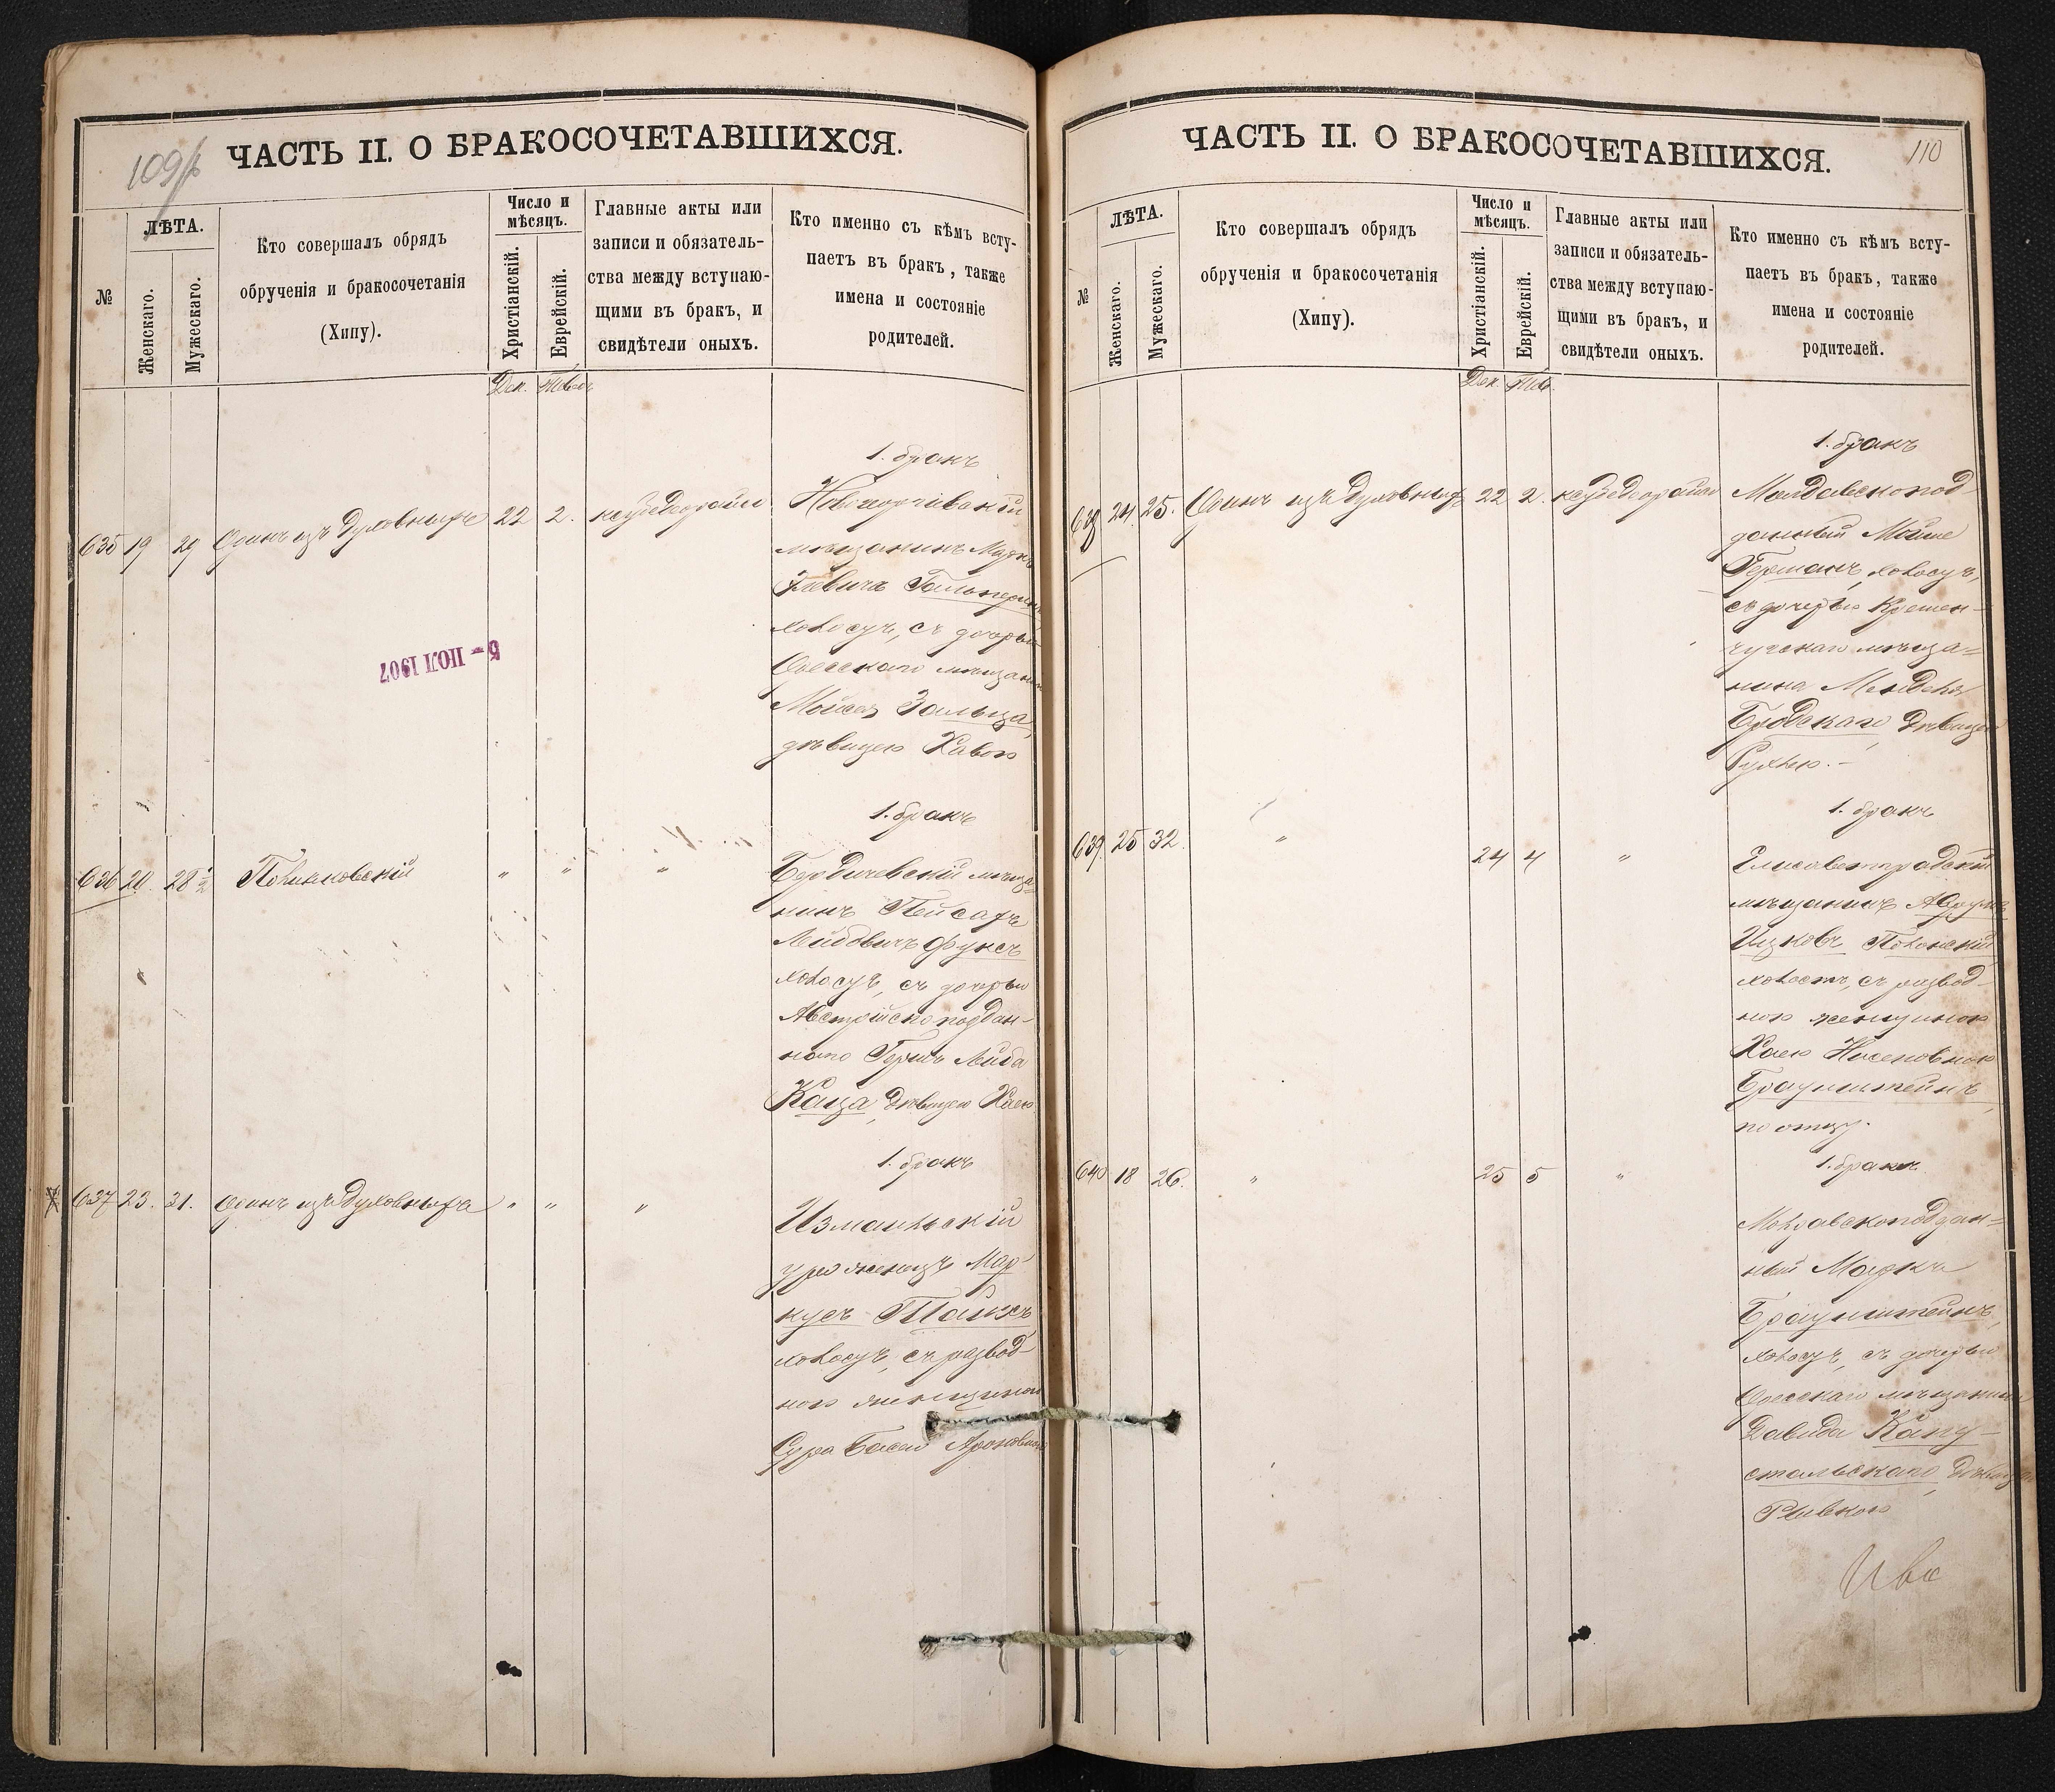 109 ЧАСТЬ II. О БРАКОСОЧЕТАВШИХСЯ.
№
ЛѢТА.
Женскаго.
Мужескаго.
Кто совершалъ обрядъ
обрученія и бракосочетанія
(Хипу).
Число и
мѣсяцъ.
Христіанскій.
Еврейскій.
Главные акты или
записи и обязатель-
ства между вступаю-
щими въ бракъ, и
свидѣтели оныхъ.
Кто именно съ кѣмъ всту-
паетъ въ бракъ, также
имена и состояніе
родителей.
Дек.
1. бракъ
635 19 29 Одинъ изъ Духовныхъ 22 2.
мѣщанинъ
холосъ, съ дочерью
Одесскаго мѣщанина
Мойсея Зальца,
дѣвицею Хавою
5 - ІЮЛ 1907
1. бракъ
636 20. 28 1/2 " " "
Бердичевскій мѣща-
нинъ Пейсахъ
Лейбовичъ Фуксъ
холосъ, съ дочерью
Австрійскоподдан-
наго Герша Лейба
Каца, дѣвицею Хаею
1. бракъ
637 23. 31. Одинъ изъ Духовныхъ " " "
Измаильскій
уроженецъ Мар-
кусъ
холосъ, съ развод-
ною женщиною
Сура Басею Ароновною
ЧАСТЬ II. О БРАКОСОЧЕТАВШИХСЯ. 110
№
ЛѢТА.
Женскаго.
Мужескаго.
Кто совершалъ обрядъ
обрученія и бракосочетанія
(Хипу).
Число и
мѣсяцъ.
Христіанскій.
Еврейскій.
Главные акты или
записи и обязатель-
ства между вступаю-
щими въ бракъ, и
свидѣтели оныхъ.
Кто именно съ кѣмъ всту-
паетъ въ бракъ, также
имена и состояніе
родителей.
Дек. Тев.
1. бракъ
638 24. 25. Одинъ изъ Духовныхъ 22 2.
Молдавскопод-
данный Мойше
Германъ, холосъ,
съ дочерью Кремен-
чугскаго мѣща-
нина Менделя
Бродскаго дѣвицею
Рухлею.-
1. бракъ
639. 25 32. " 24 4 "
Елисаветградскій
мѣщанинъ Аврумъ
Ицковъ Полонскій
холостъ, съ развод-
ною женщиною
Хаею Нисеновною
Браунштейнъ,
по отцу.
1. бракъ
640 18 26. " 25 5 "
Молдавскоподдан-
ный Маркъ
Браунштейнъ,
холосъ, съ дочерью
Одесскаго мѣщанина
Давида Капу-
стальскаго, дѣвицею
Ривкою